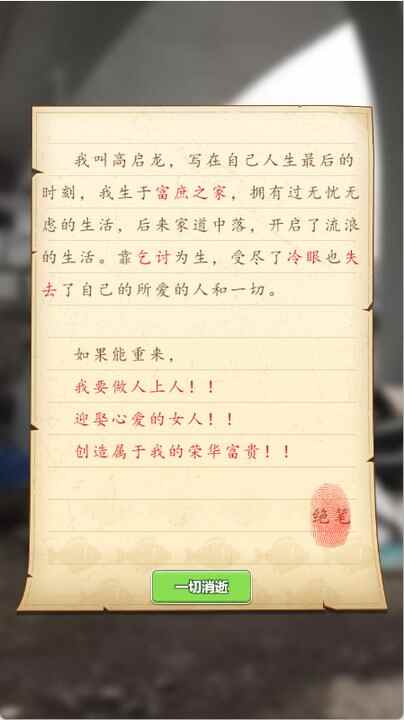 我叫高启龙，写在自己人生最后的
时刻，我生于富庶之家，拥有过无忧无
虑的生活，后来家道中落，开启了流浪
的生活。靠乞讨为生，受尽了冷眼也失
去了自己的所爱的人和一切。
如果能重来，
我要做人上人！！
迎娶心爱的女人！！
创造属于我的荣华富贵！！
绝笔
一切消逝